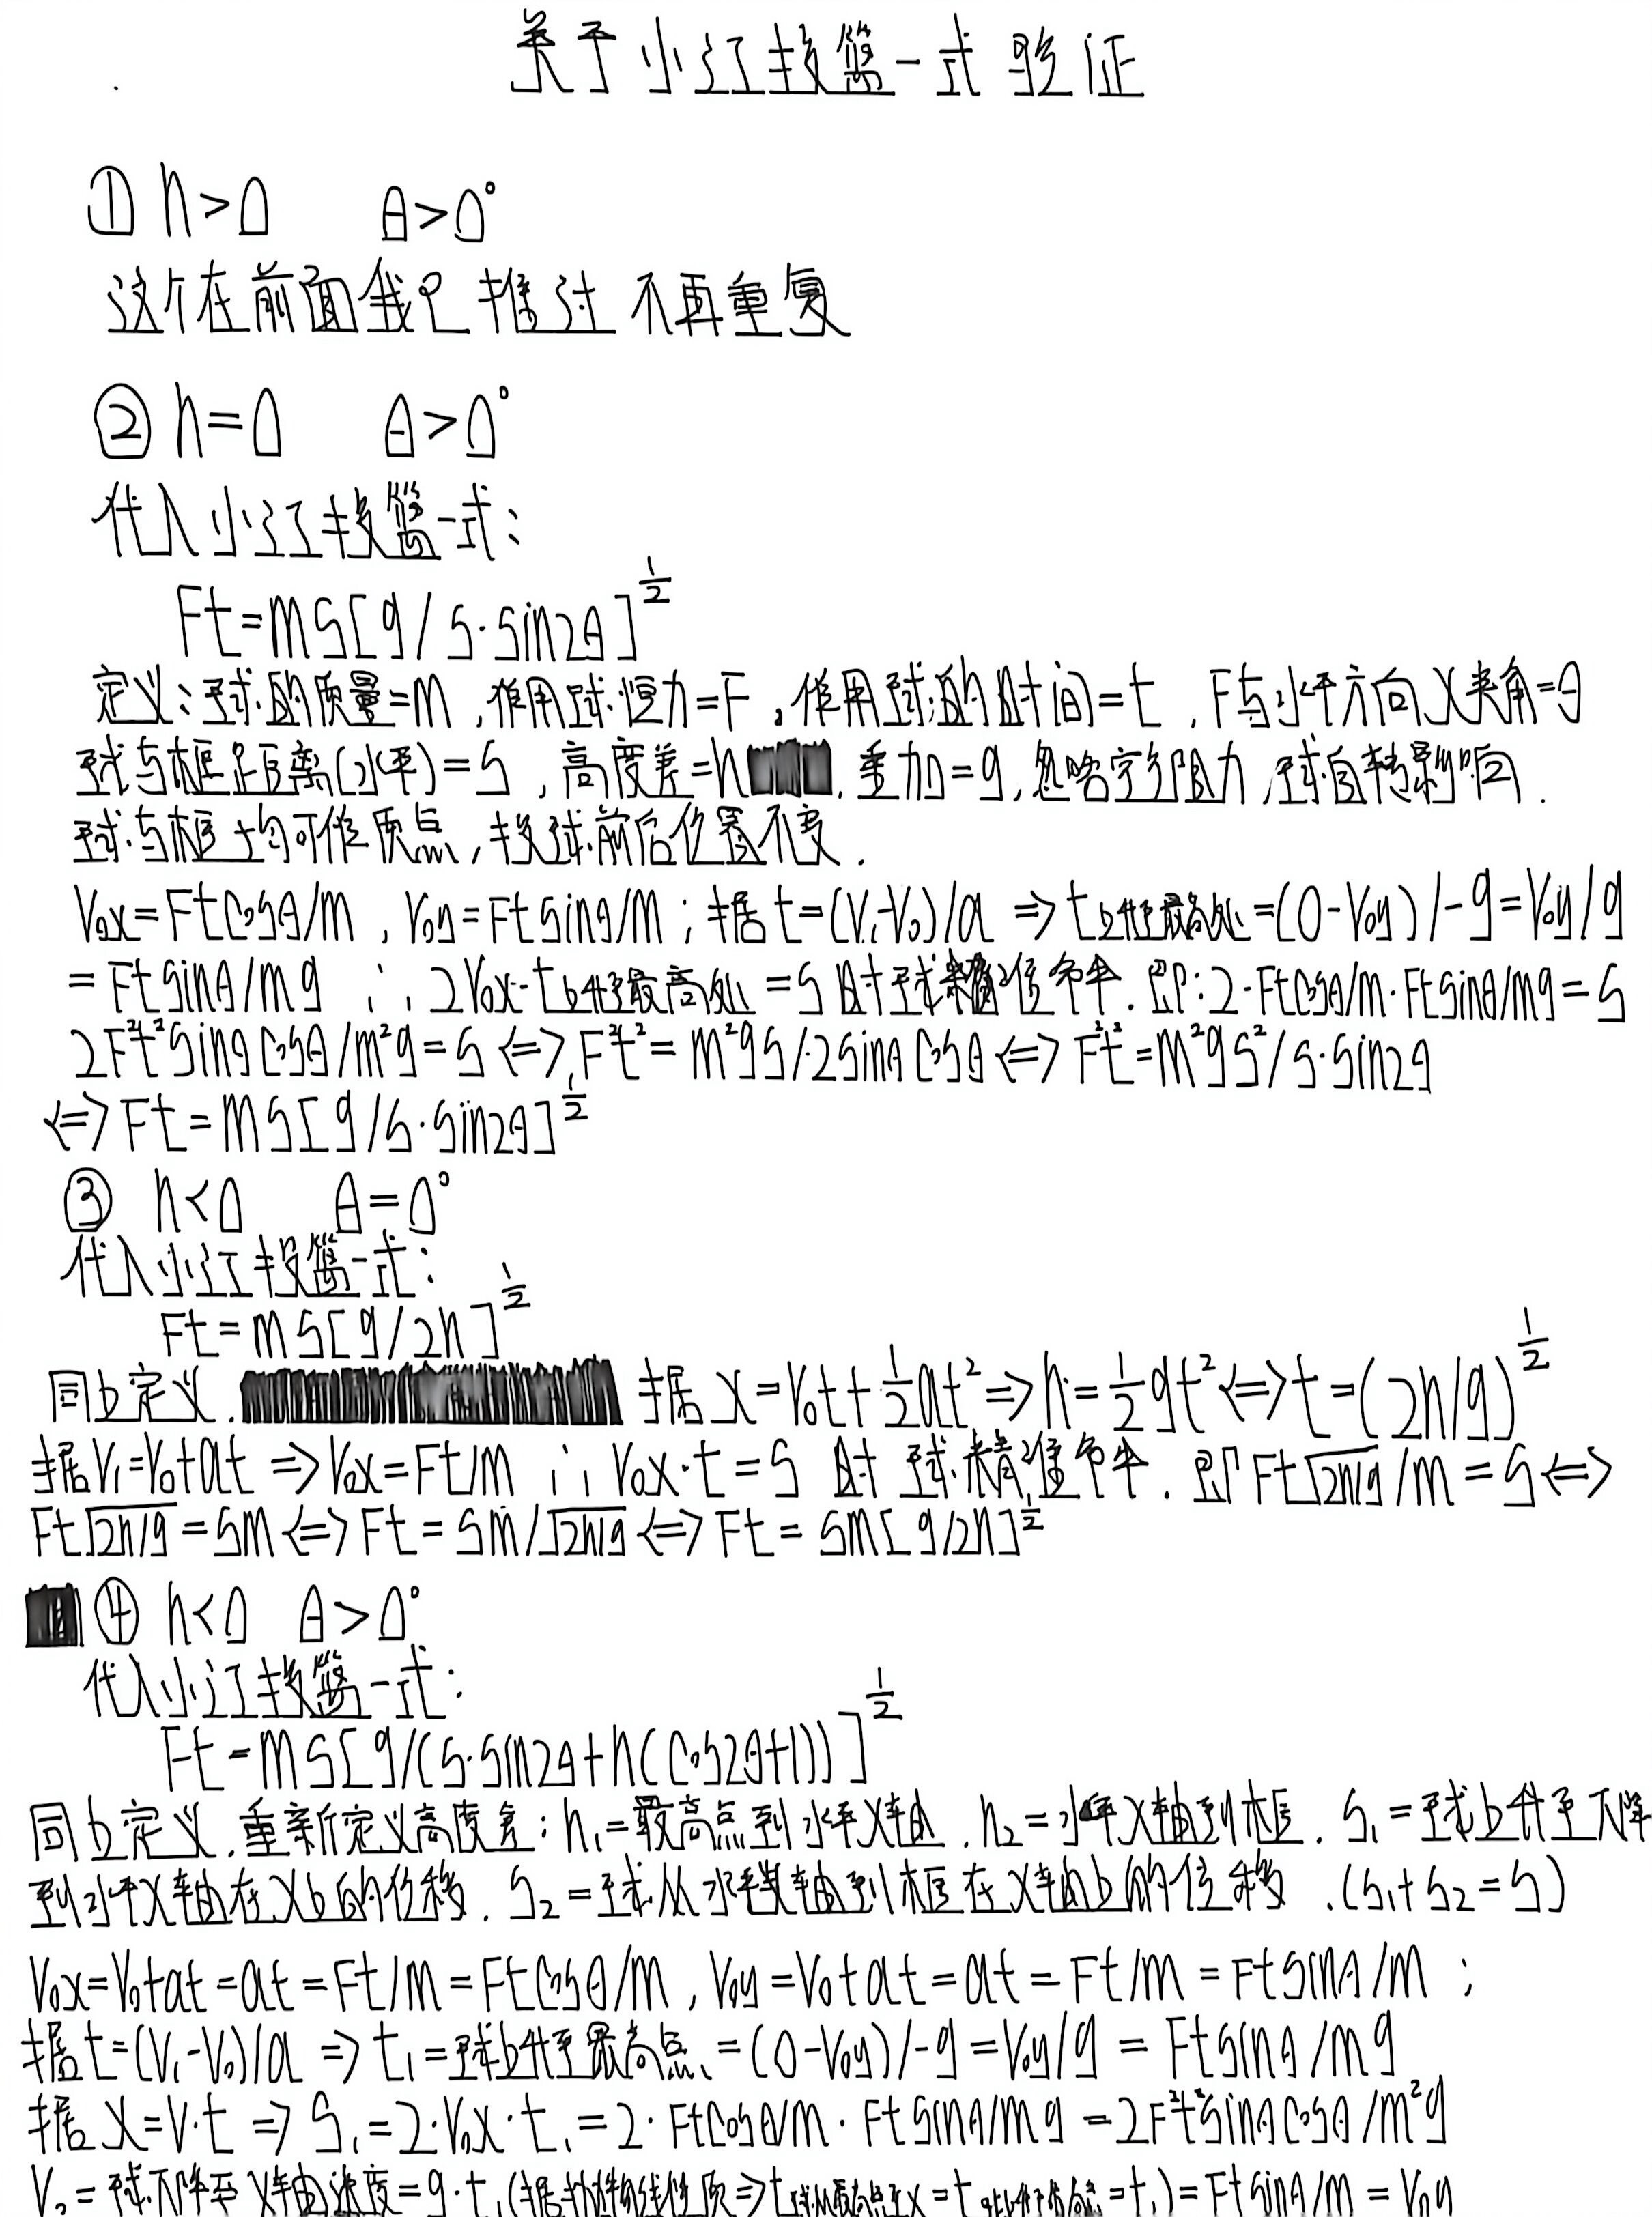 关于小江投篮一式验证
① h>0 θ>0°
这个在前面我已推过 不再重复
② h=0 θ>0°
代入小江投篮一式:
Ft=mS[g/S·sin2θ]^½
定义:球的质量=m,作用球恒力=F,作用球的时间=t,F与水平方向X夹角=θ
球与框距离(水平)=S,高度差=h,重加=g,忽略空气阻力,球自转影响.
球与框均可作质点,投球前后位置不变.
V₀x=Ftcosθ/m,V₀y=Ftsinθ/m;据t=(V₁-V₀)/a ⇒ t上升至最高处=(0-V₀y)/-g=V₀y/g
=Ftsinθ/mg ∴ 2V₀x·t上升至最高处=S时球精准命中.即:2·Ftcosθ/m·Ftsinθ/mg=S
2F²t²sinθcosθ/m²g=S⇔F²t²=m²gS/2sinθcosθ⇔F²t²=m²gS²/S·sin2θ
⇔Ft=mS[g/S·sin2θ]^½
③ h<0 θ=0°
代入小江投篮一式:
Ft=mS[g/2h]^½
同上定义. 据X=V₀t+½at²⇒h=½gt²⇔t=(2h/g)^½
据V₁=V₀+at⇒V₀x=Ft/m ∴ V₀x·t=S时球精准命中.即Ft√2h/g/m=S⇔
Ft√2h/g=Sm⇔Ft=Sm/√2h/g⇔Ft=Sm[g/2h]^½
④ h<0 θ>0°
代入小江投篮一式:
Ft=mS[g/(S·sin2θ+h(cos2θ+1))]^½
同上定义.重新定义高度差:h₁=最高点到水平X轴.h₂=水平X轴到框.S₁=球上升至下降
到水平X轴在X上的位移.S₂=球从水平X轴到框在X轴上的位移.(S₁+S₂=S)
V₀x=V₀+at=at=Ft/m=Ftcosθ/m,V₀y=V₀+at=at=Ft/m=Ftsinθ/m;
据t=(V₁-V₀)/a⇒t₁=球上升至最高点=(0-V₀y)/-g=V₀y/g=Ftsinθ/mg
据X=V·t⇒S₁=2·V₀x·t₁=2·Ftcosθ/m·Ftsinθ/mg=2F²t²sinθcosθ/m²g
V₂=球下降至X轴速度=g·t₁(据抛物线性质⇒t球从最高点至X=t球上升至最高点=t₁)=Ftsinθ/m=V₀y